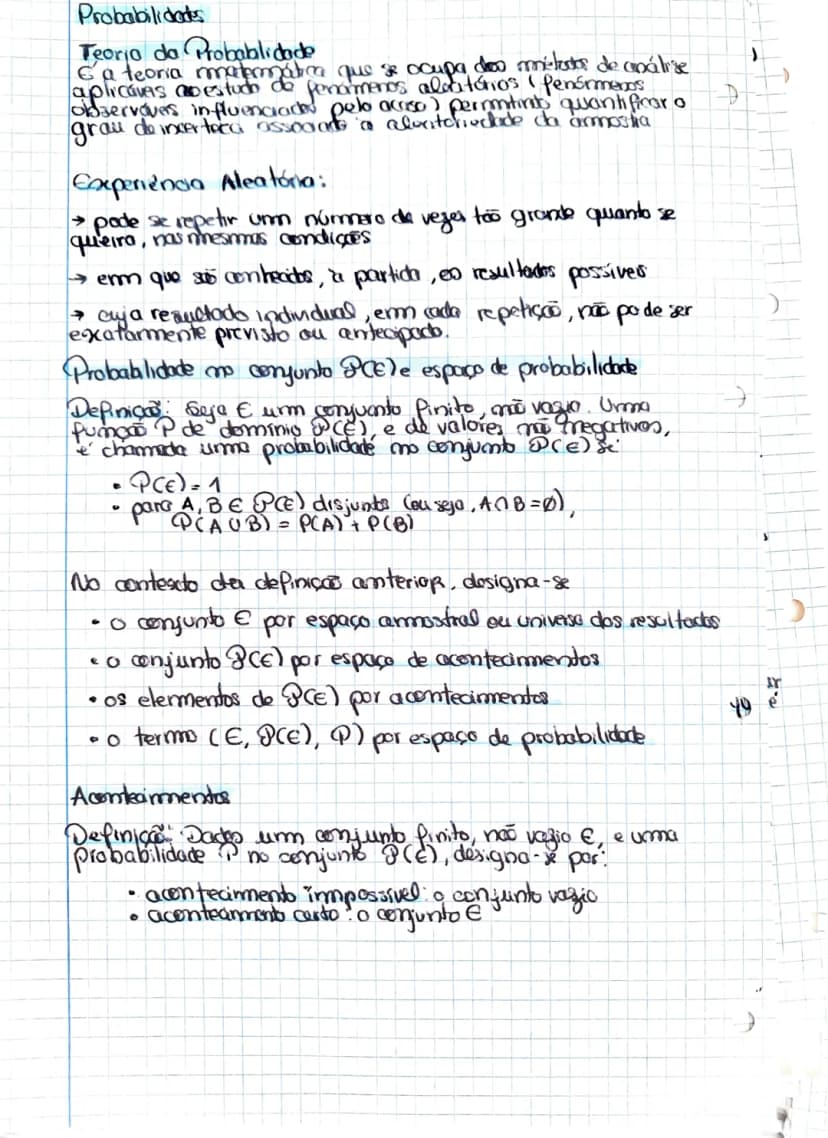 Probabilidades
Teoria da Probablidade
É a teoria matemática que se ocupa dos métodos de análise
aplicáveis ao estudo de fenómenos aleatórios (fenómenos
observáveis influenciados pelo acaso) permitindo quantificar o
grau de incerteza associado à aleatoriedade da amostra
Experiência Aleatória:
→ pode se repetir um número de vezes tão grande quanto se
queira, nas mesmas condições
→ em que são conhecidos, à partida, os resultados possíveis
→ cuja resultado individual, em cada repetição, não pode ser
exatamente previsto ou antecipado.
Probabilidade no conjunto P(E) e espaço de probabilidade
Definição: Seja E um conjunto finito, não vazio. Uma
função P de domínio P(E), e de valores não negativos,
é chamada uma probabilidade no conjunto P(E) se:
• P(E) = 1
• para A, B ∈ P(E) disjuntos (ou seja, A∩B=∅),
P(A∪B) = P(A) + P(B)
No contexto da definição anterior, designa-se
• o conjunto E por espaço amostral ou universo dos resultados
• o conjunto P(E) por espaço de acontecimentos
• os elementos de P(E) por acontecimentos
• o termo (E, P(E), P) por espaço de probabilidade
Acontecimentos
Definição: Dados um conjunto finito, não vazio E, e uma
probabilidade P no conjunto P(E), designa-se por:
• acontecimento impossível: o conjunto vazio
• acontecimento certo: o conjunto E